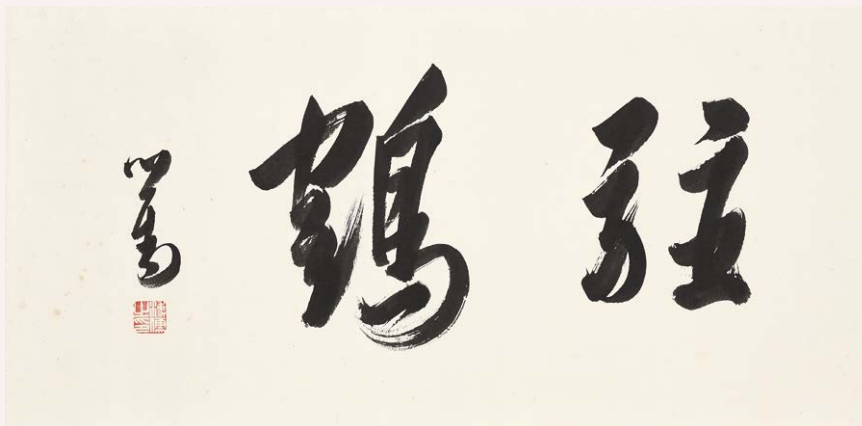 駐鶴
心畬